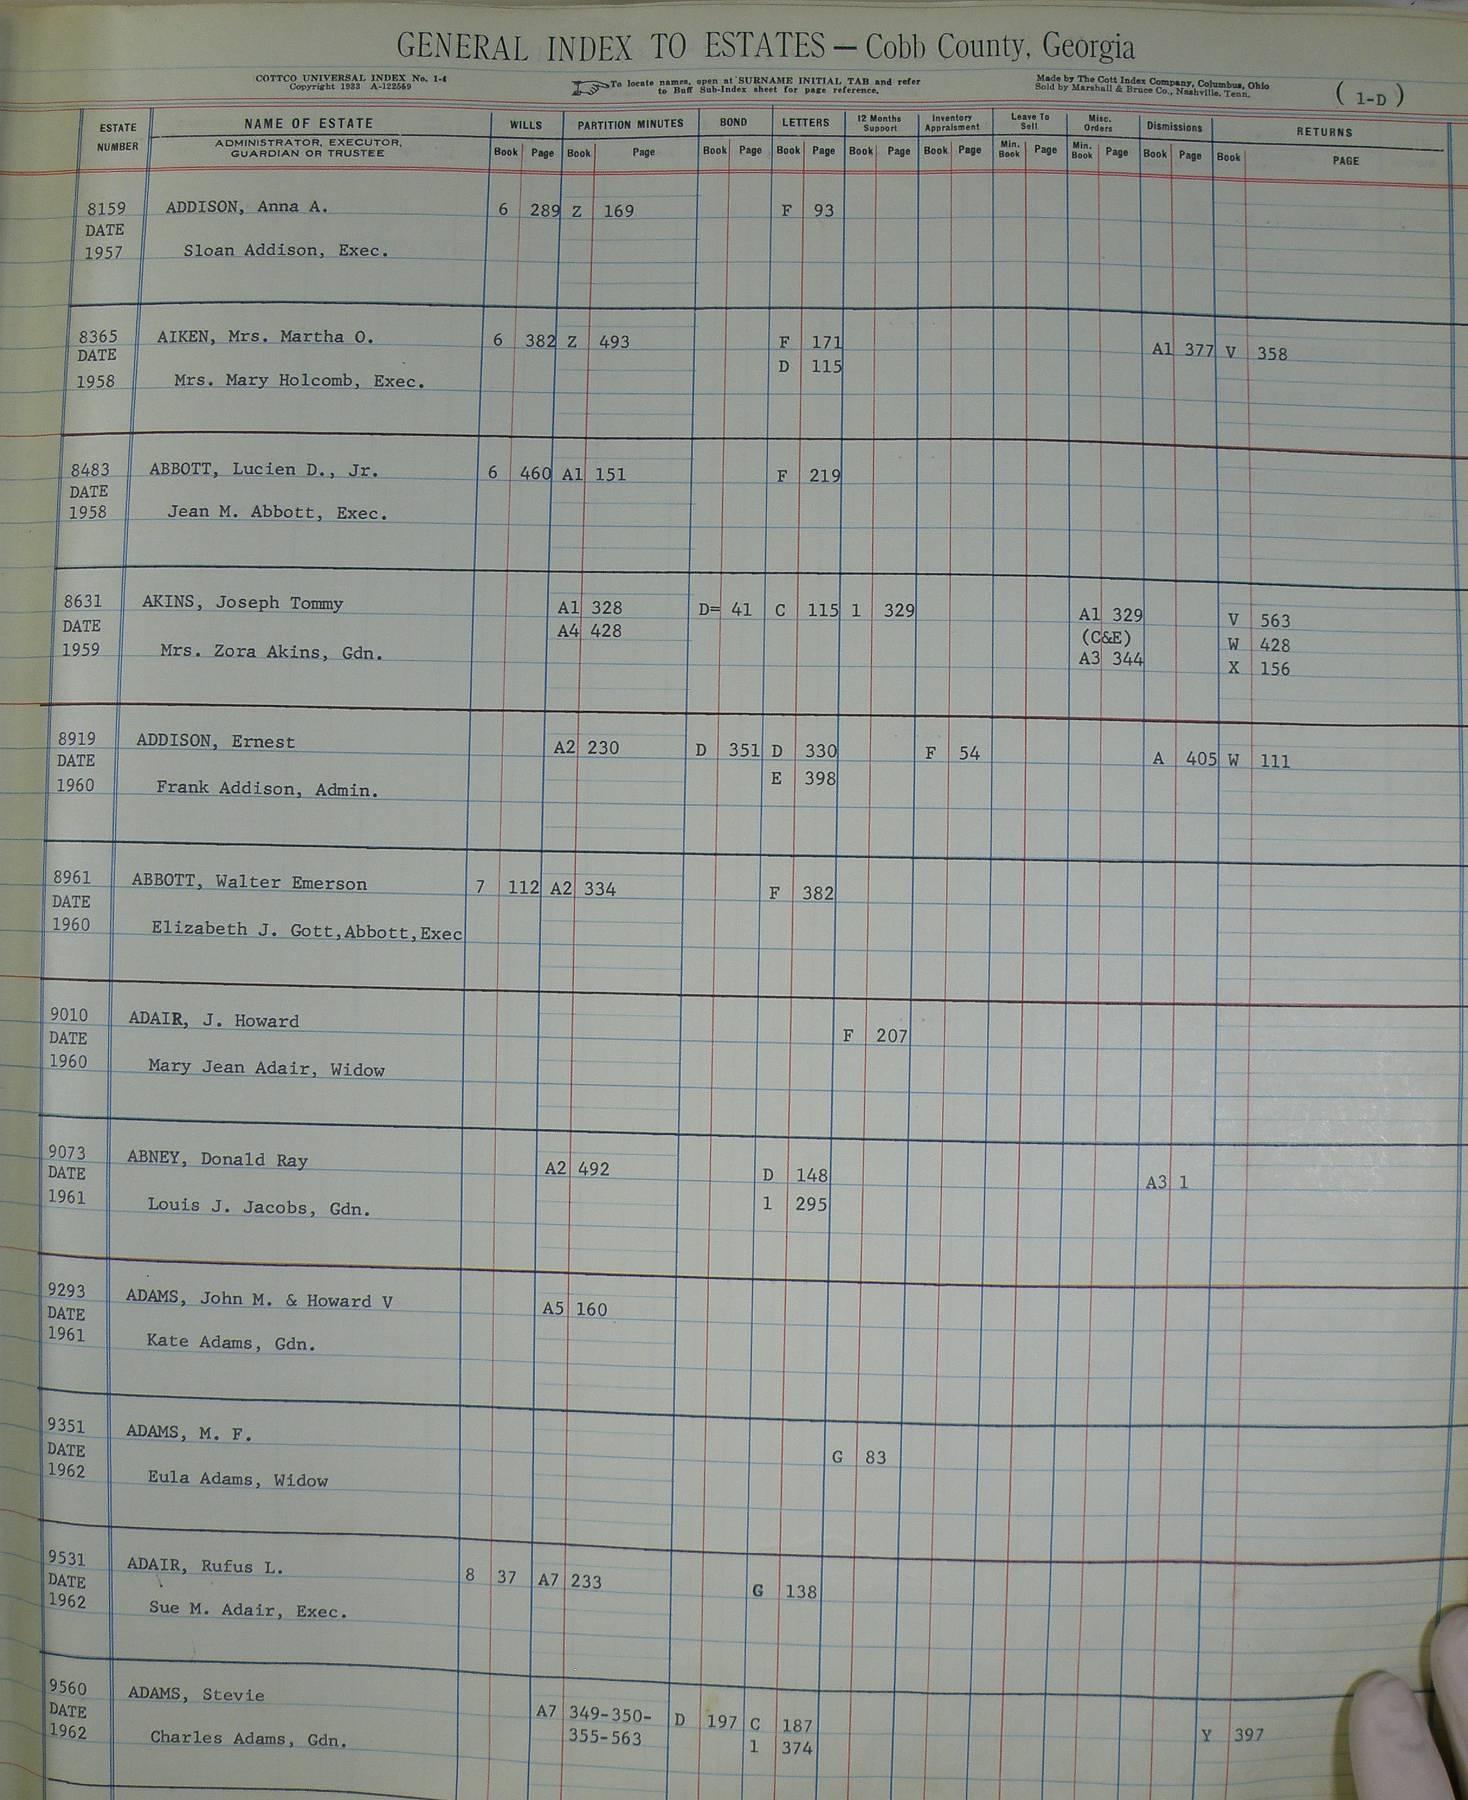 GENERAL INDEX TO ESTATES — Cobb County, Georgia
COTTCO UNIVERSAL INDEX No. 1-4
Copyright 1933 A-122569
To locate names, open at SURNAME INITIAL TAB and refer
to Buff Sub-Index sheet for page reference.
Made by The Cott Index Company, Columbus, Ohio
Sold by Marshall & Bruce Co., Nashville, Tenn.
( 1-D )
ESTATE NUMBER
NAME OF ESTATE
ADMINISTRATOR, EXECUTOR,
GUARDIAN OR TRUSTEE
WILLS PARTITION MINUTES BOND LETTERS 12 Months Support Inventory Appraisment Leave To Sell Misc. Orders Dismissions RETURNS
Book Page Book Page Book Page Book Page Book Page Book Page Min. Book Page Min. Book Page Book Page Book PAGE
8159 ADDISON, Anna A. 6 289 Z 169 F 93
DATE
1957 Sloan Addison, Exec.
8365 AIKEN, Mrs. Martha O. 6 382 Z 493 F 171 A1 377 V 358
DATE D 115
1958 Mrs. Mary Holcomb, Exec.
8483 ABBOTT, Lucien D., Jr. 6 460 A1 151 F 219
DATE
1958 Jean M. Abbott, Exec.
8631 AKINS, Joseph Tommy A1 328 D= 41 C 115 1 329 A1 329 V 563
DATE A4 428 (C&E) W 428
1959 Mrs. Zora Akins, Gdn. A3 344 X 156
8919 ADDISON, Ernest A2 230 D 351 D 330 F 54 A 405 W 111
DATE E 398
1960 Frank Addison, Admin.
8961 ABBOTT, Walter Emerson 7 112 A2 334 F 382
DATE
1960 Elizabeth J. Gott,Abbott,Exec
9010 ADAIR, J. Howard F 207
DATE
1960 Mary Jean Adair, Widow
9073 ABNEY, Donald Ray A2 492 D 148 A3 1
DATE 1 295
1961 Louis J. Jacobs, Gdn.
9293 ADAMS, John M. & Howard V A5 160
DATE
1961 Kate Adams, Gdn.
9351 ADAMS, M. F. G 83
DATE
1962 Eula Adams, Widow
9531 ADAIR, Rufus L. 8 37 A7 233 G 138
DATE
1962 Sue M. Adair, Exec.
9560 ADAMS, Stevie
DATE A7 349-350- D 197 C 187 Y 397
1962 Charles Adams, Gdn. 355-563 1 374